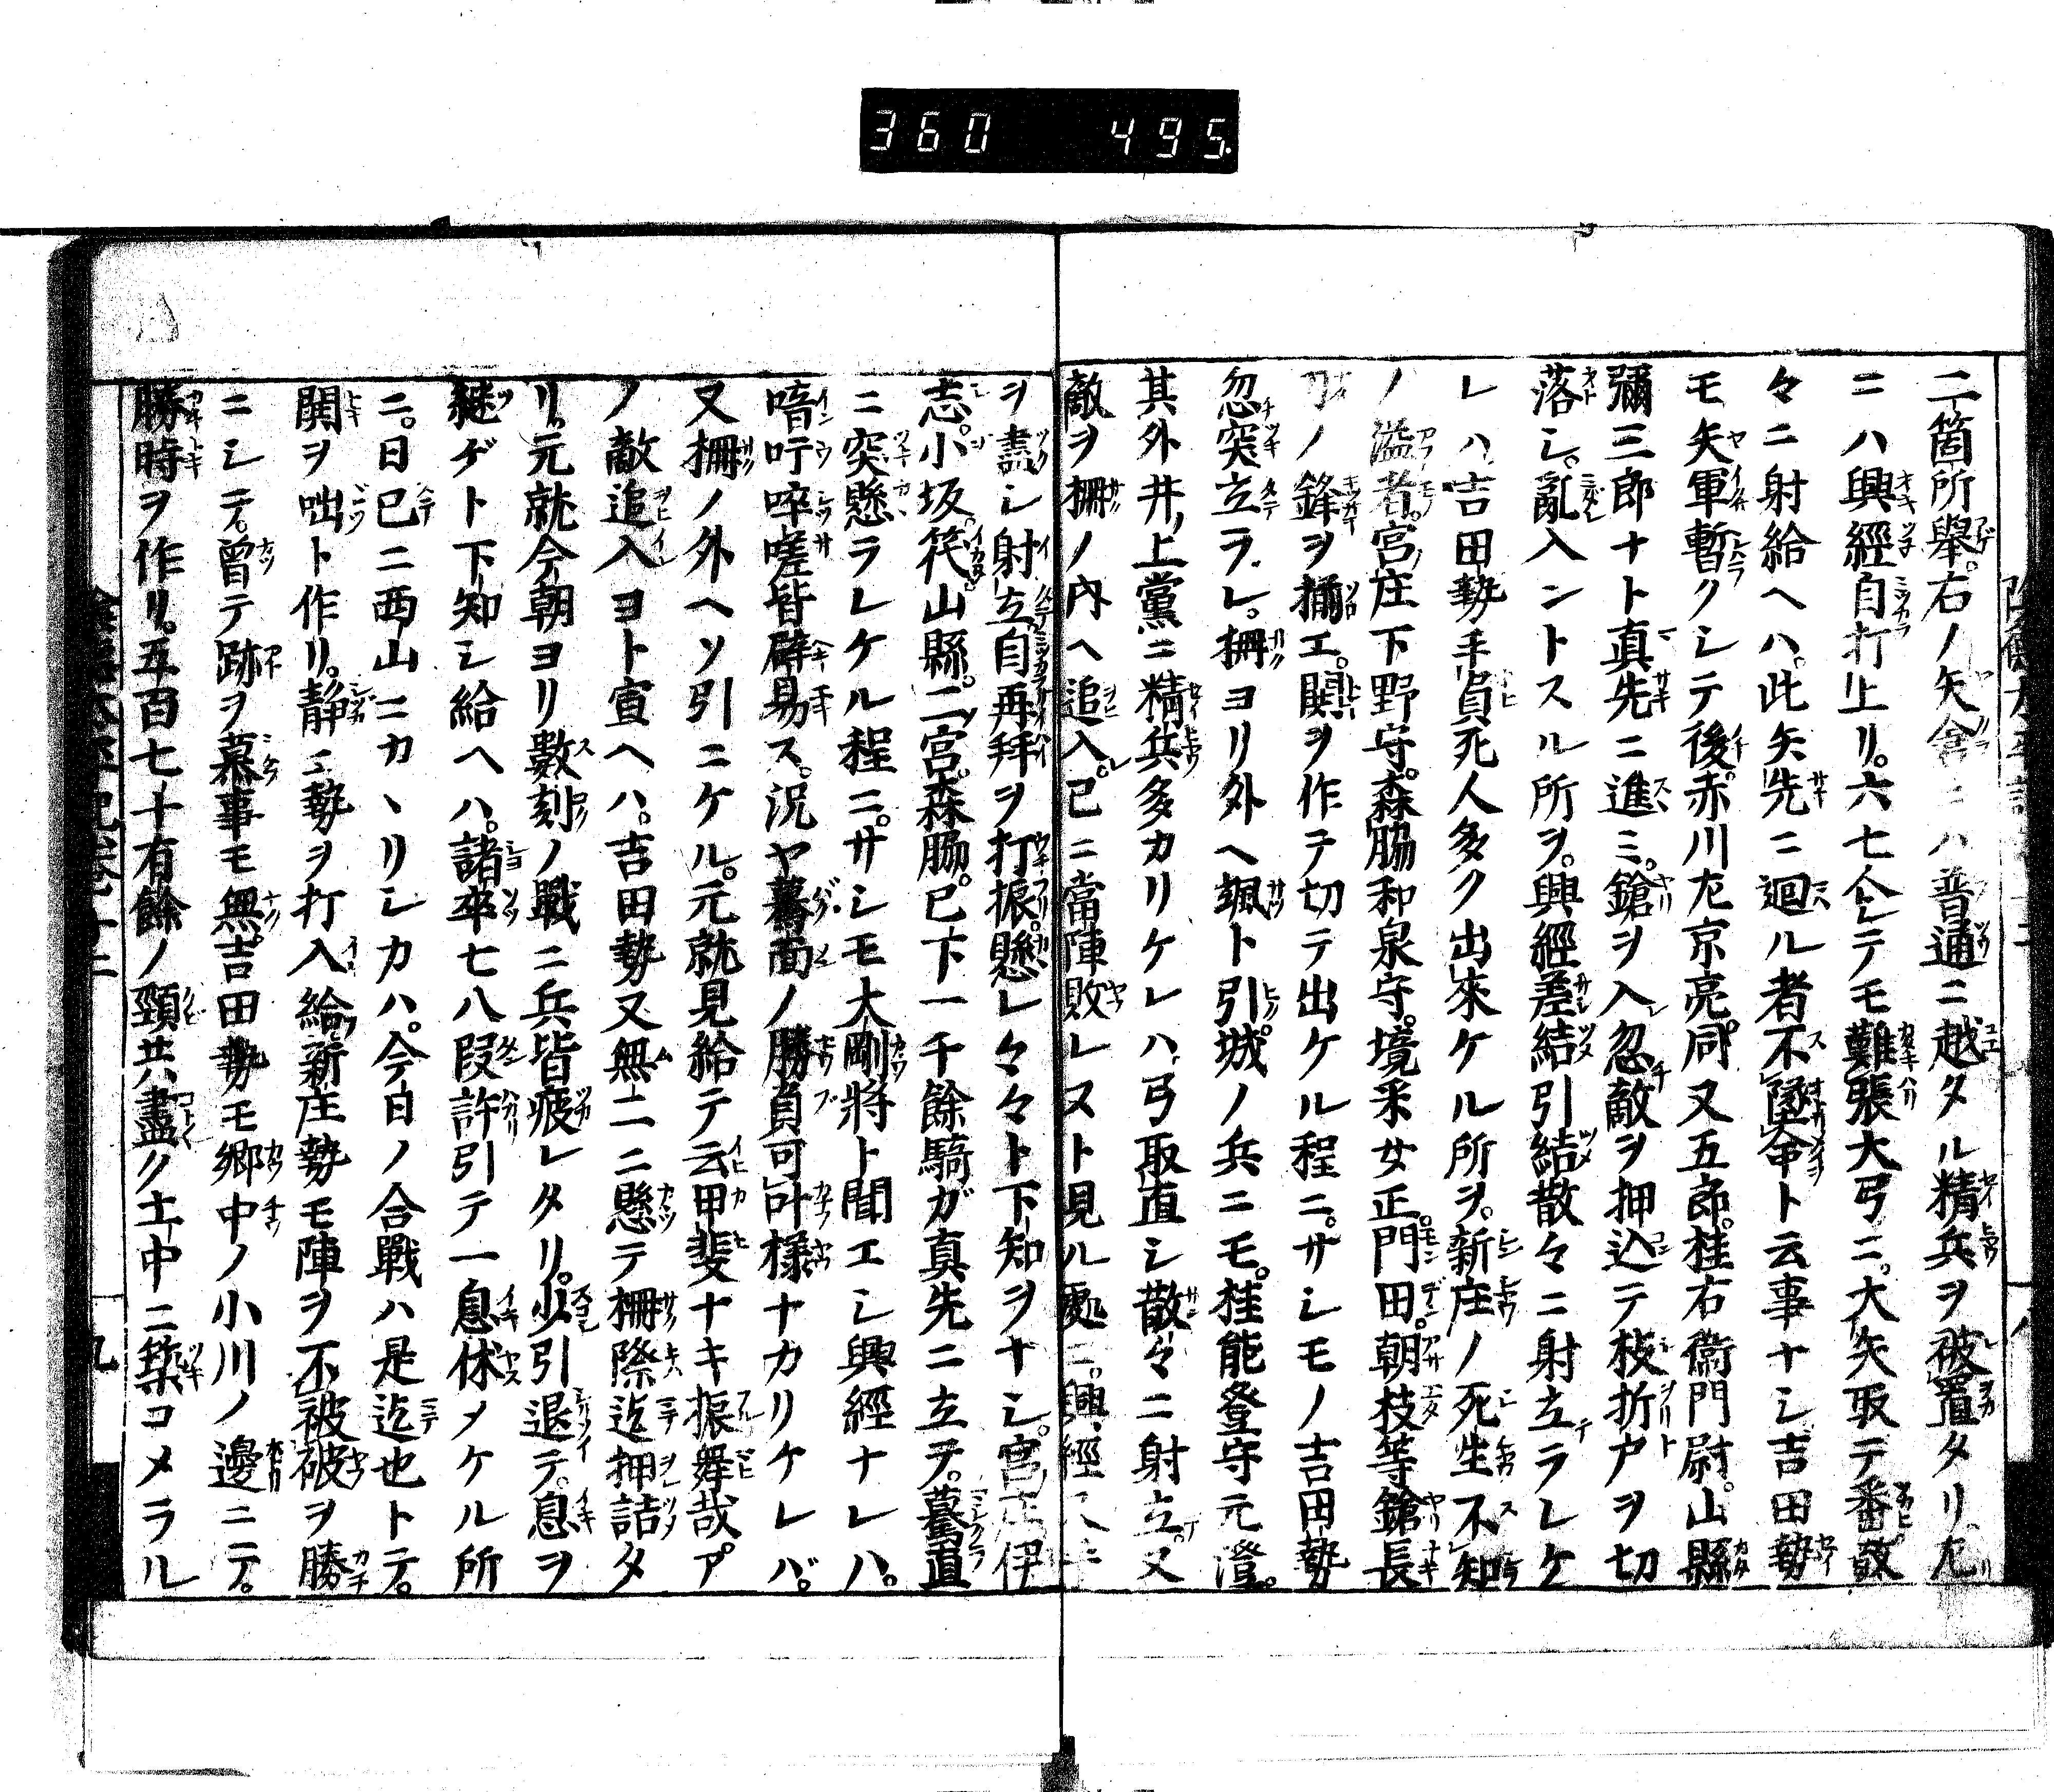 360 495
二箇所擧。右ノ矢倉ニハ普通ニ越タル精兵ヲ被置タリ左
ニハ興經自打上リ。六七人シテモ難張大弓ニ。大矢取テ番。散
々ニ射給ヘハ。此矢先ニ迴ル者不墜命ト云事ナシ吉田勢
モ矢軍暫クシテ後。赤川左京亮。同又五郎。桂右衞門尉。山縣
彌三郎ナト真先ニ進ミ。鎗ヲ入忽敵ヲ押込テ枝折戸ヲ切
落シ。亂入ントスル所ヲ。興經差結引結散々ニ射立ラレケ
レハ吉田勢手負死人多ク出來ケル所ヲ。新庄ノ死生不知
ノ溢者。宮庄下野守。森脇和泉守。境采女正。門田。朝枝等鎗長
刀ノ鋒ヲ揃エ。鬨ヲ作テ切テ出ケル程ニ。サシモノ吉田勢
忽突立ラレ。柵ヨリ外ヘ颯ト引。城ノ兵ニモ。桂能登守元澄。
其外井上黨ニ精兵多カリケレハ弓取直シ散々ニ射立。又
敵ヲ柵ノ内ヘ追入。已ニ當陣敗レヌト見ル處ニ。興經
ヲ盡シ射立。自再拜ヲ打振。懸レ々々ト下知ヲナシ。宮庄伊
志。小坂。筏。山縣。二宮。森脇。已下一千餘騎ガ真先ニ立テ。驀直
ニ突懸ラレケル程ニ。サシモ大剛將ト聞エシ興經ナレハ。
喑吁啐嗟皆辟易ス。況ヤ驀面ノ勝負可叶様ナカリケレバ。
又柵ノ外ヘソ引ニケル。元就見給テ云甲斐ナキ振舞哉。ア
ノ敵追入ヨト宣ヘハ。吉田勢又無二ニ懸テ柵際迄押詰タ
リ。元就今朝ヨリ數刻ノ戰ニ兵皆疲レタリ。少引退テ。息ヲ
繼ゲト下知シ給ヘハ。諸卒七八段許引テ一息休メケル所
ニ。日已ニ西山ニカヽリシカハ。今日ノ合戰ハ是迄也トテ。
鬨ヲ咄ト作リ。静ニ勢ヲ打入給。新庄勢モ陣ヲ不被破ヲ勝
ニシテ。曾テ跡ヲ慕事モ無。吉田勢モ郷中ノ小川ノ邊ニテ。
勝時ヲ作リ。五百七十有餘ノ頸共盡ク土中ニ築コメラル
九